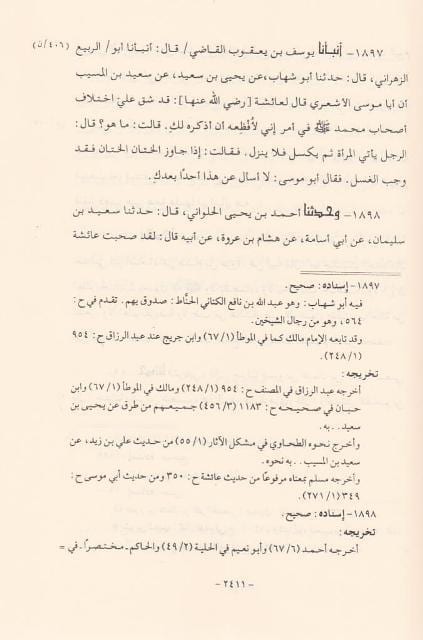 ١٨٩٧- أنبأنا يوسف بن يعقوب القاضي/ قال: أنبأنا أبو/ الربيع (٤٠٦/ن)
الزهراني، قال: حدثنا أبو شهاب، عن يحيى بن سعيد، عن سعيد بن المسيب
أن أبا موسى الأشعري قال لعائشة [رضي الله عنها]: قد شق علي اختلاف
أصحاب محمد ﷺ في أمر إني لأُفْظِعه أن أذكره لك. قالت: ما هو؟ قال:
الرجل يأتي المرأة ثم يكسل فلا ينزل. فقالت: إذا جاوز الختان الختان فقد
وجب الغسل. فقال أبو موسى: لا أسأل عن هذا أحدًا بعدك.
١٨٩٨- وحدثنا أحمد بن يحيى الحلواني، قال: حدثنا سعيد بن
سليمان، عن أبي أسامة، عن هشام بن عروة، عن أبيه قال: لقد صحبت عائشة
١٨٩٧- إسناده: صحيح.
فيه أبو شهاب: وهو عبد الله بن نافع الكناني الحنَّاط: صدوق يهم. تقدم في ح:
٥٦٤، وهو من رجال الشيخين.
وقد تابعه الإمام مالك كما في الموطأ (٦٧/١) وابن جريج عند عبد الرزاق ح: ٩٥٤
(٢٤٨/١).
تخريجه:
أخرجه عبد الرزاق في المصنف ح: ٩٥٤ (٢٤٨/١) ومالك في الموطأ (٦٧/١) وابن
حبان في صحيحه ح: ١١٨٣ (٤٥٦/٣) جميعهم من طرق عن يحيى بن
سعيد.. به.
وأخرج نحوه الطحاوي في مشكل الآثار (٥٥/١) من حديث علي بن زيد، عن
سعيد بن المسيب. . به نحوه.
وأخرجه مسلم بمعناه مرفوعًا من حديث عائشة ح: ٣٥٠ ومن حديث أبي موسى ح:
٣٤٩ (٢٧١/١).
١٨٩٨- إسناده: صحيح.
تخريجه:
أخرجه أحمد (٦٧/٦) وأبو نعيم في الحلية (٤٩/٢) والحاكم ـ مختصرًا ـ في =
-٢٤١١-